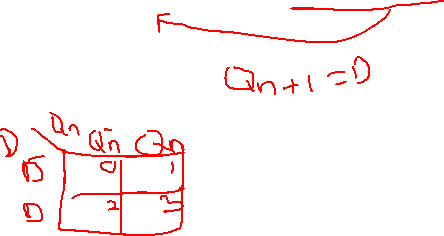 Qn+1 = D
D Qn Q̄n Qn
D̄ 0 1
D 2 3